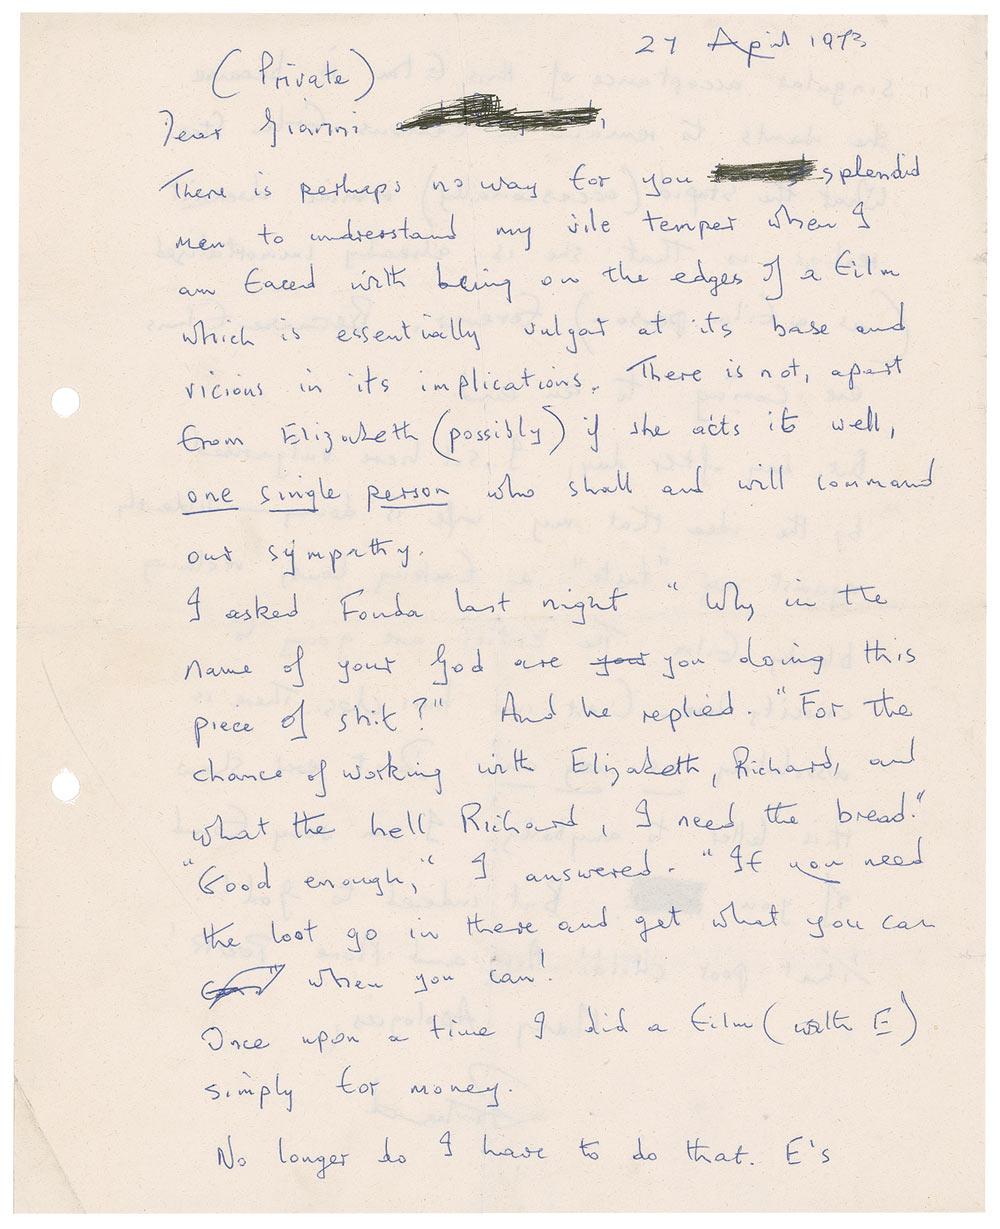 27 April 1973
(Private)
Dear Gianni
There is perhaps no way for you splendid
men to understand my vile temper when I
am faced with being on the edges of a film
which is essentially vulgar at its base and
vicious in its implications. There is not, apart
from Elizabeth (possibly) if she acts it well,
one single person who shall and will command
our sympathy.
I asked Fonda last night "Why in the
name of your God are your you doing this
piece of shit?" And he replied. "For the
chance of working with Elizabeth, Richard, and
what the hell Richard, I need the bread."
"Good enough," I answered. "If you need
the loot go in there and get what you can
when you can!
Once upon a time I did a film (with E)
simply for money.
No longer do I have to do that. E's